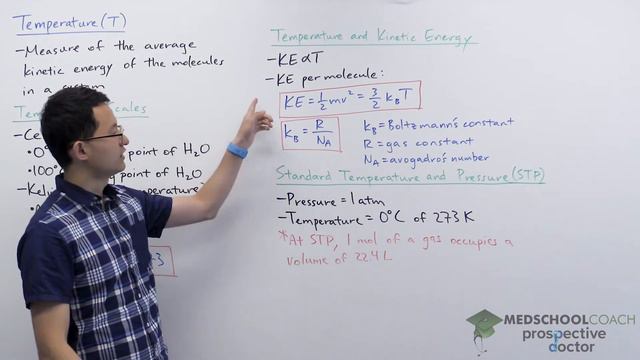 Temperature (T)
-Measure of the average
kinetic energy of the molecules
in a system
Scales
-Ce
•0°
point of H₂O
•100°
point of H₂O
-Kelvin
temperature
3
Temperature and Kinetic Energy
-KE∝T
-KE per molecule:
KE = ½mv² = 3/2 k_BT
k_B = R/N_A
k_B = Boltzmann's constant
R = gas constant
N_A = avogadro's number
Standard Temperature and Pressure (STP)
-Pressure = 1 atm
-Temperature = 0°C of 273 K
*At STP, 1 mol of a gas occupies a
volume of 22.4 L
MEDSCHOOLCOACH
prospective
doctor